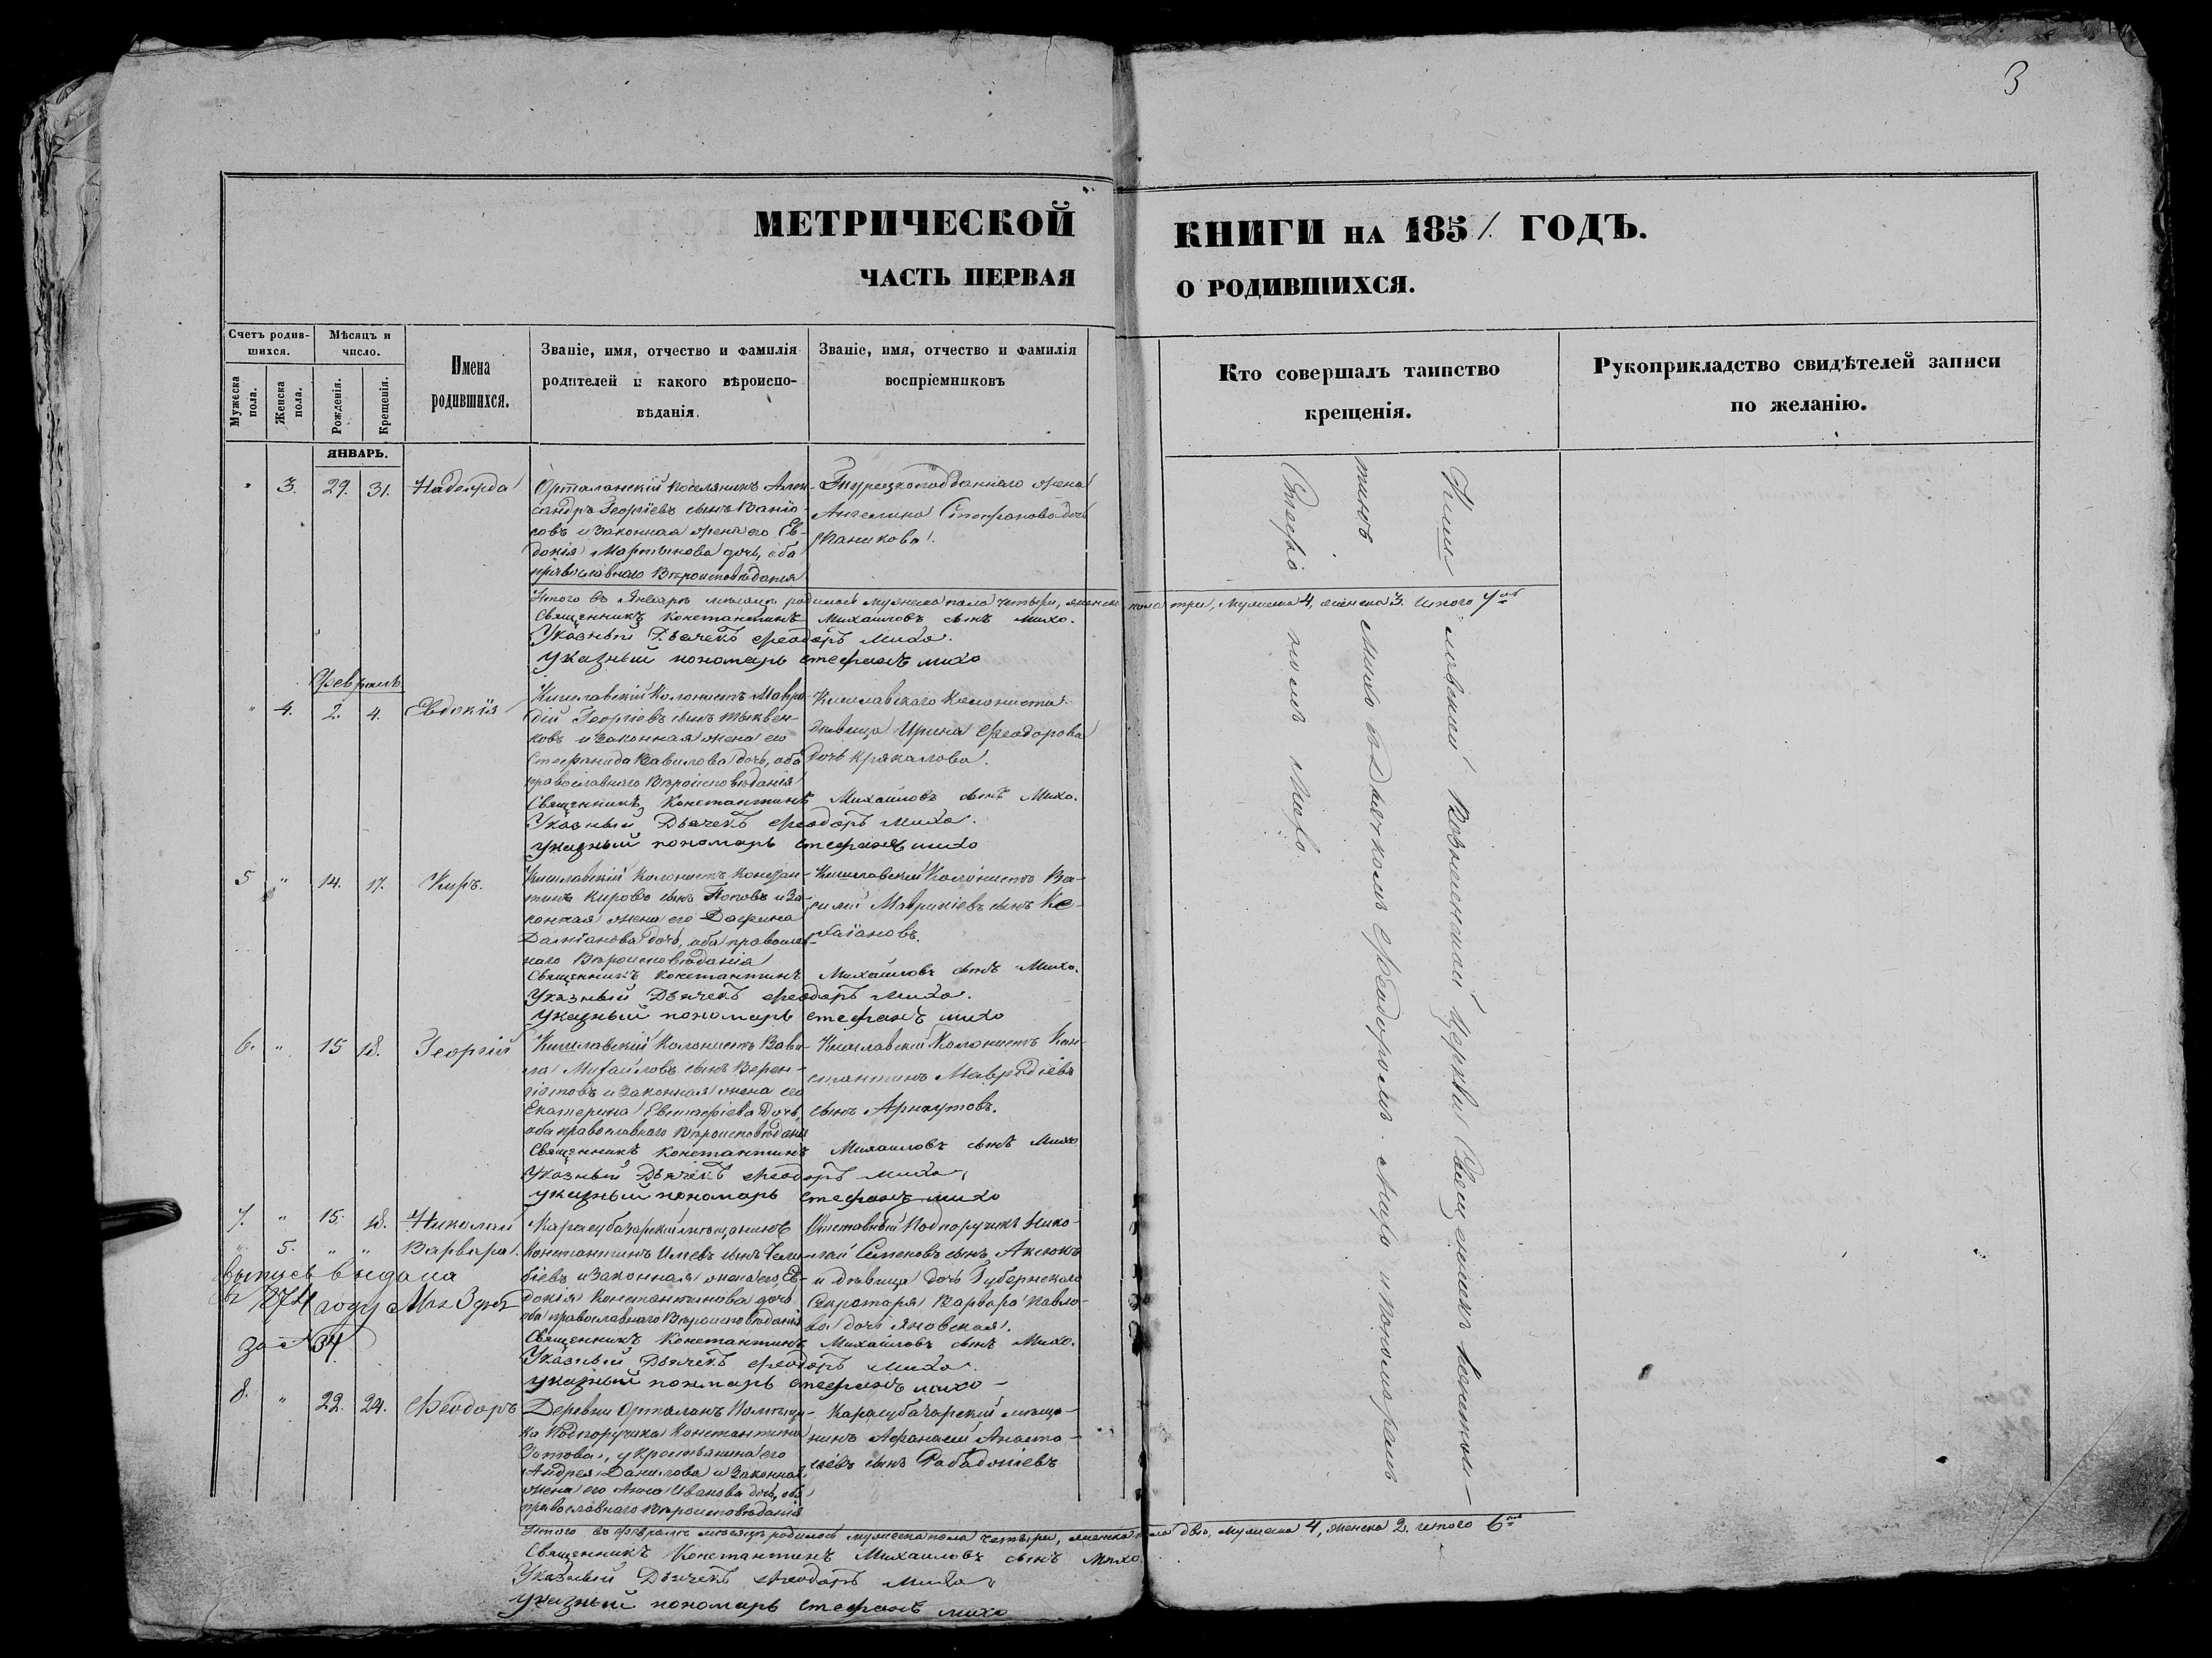 3
МЕТРИЧЕСКОЙ
КНИГИ НА 1851. ГОДЪ.
ЧАСТЬ ПЕРВАЯ
О РОДИВШИХСЯ.
Счетъ родив-
шихся.
Мѣсяцъ и
число.
Мужеска
пола.
Женска
пола.
Рожденія.
Крещенія.
Имена
родившихся.
Званіе, имя, отчество и фамилія
родителей и какого вѣроиспо-
вѣданія.
Званіе, имя, отчество и фамилія
воспріемниковъ
Кто совершалъ таинство
крещенія.
Рукоприкладство свидѣтелей записи
по желанію.
ЯНВАРЬ.
" 3. 29. 31. Надежда
Орталанскій поселянинъ Алек-
сандръ Георгіевъ сынъ
и законная жена его Ев-
докія Мартынова дочь, оба
православнаго Вѣроисповѣданія
Турецкоподданнаго жена
Ангелина Стефанова дочь
Паникова.
Итого въ Январѣ мѣсяцѣ родилось мужеска пола четыри, женска пола три, мужеска 4, женска 3. Итого 7
Священникъ Константинъ Михаиловъ сынъ Михо.
Указный Дьячекъ Феодоръ Михо.
Указный пономарь Стефанъ михо
Февраль
" 4. 2. 4. Евдокія
Кишлавскій Колонистъ Мавро-
дій Георгіевъ сынъ Тыквен-
ковъ и законная жена его
Стефанида Вавилова дочь, оба
православнаго Вѣроисповѣданія
Кишлавскаго Колониста
дѣвица Ирина Феодорова
дочь Крякалова.
Священникъ Константинъ Михаиловъ сынъ Михо.
Указный Дьячекъ Феодоръ Михо.
Указный пономарь Стефанъ михо
5 " 14. 17. Киръ.
Кишлавскій Колонистъ Констан-
тинъ Кировъ сынъ Поповъ и за-
конная жена его Дафина
Даміанова дочь, оба православ-
наго Вѣроисповѣданія
Кишлавскій Колонистъ Ва-
силій сынъ Ке-
хаіановъ.
Священникъ Константинъ Михаиловъ сынъ Михо.
Указный Дьячекъ Феодоръ Михо.
Указный пономарь Стефанъ михо
6. " 15 18. Георгій
Кишлавскій Колонистъ Вави-
ла Михаиловъ сынъ
и законная жена его
Екатерина Евстафіева дочь,
оба православнаго Вѣроисповѣданія
Кишлавскій Колонистъ Кон-
стантинъ Мавродіевъ
сынъ Арнаутовъ.
Священникъ Константинъ Михаиловъ сынъ Михо
Указный Дьячекъ Феодоръ Михо.
Указный пономарь Стефанъ михо
7. " 15. 18. Николай
" 5. " " Варвара.
Выпись выдана
въ 1874 году Мая 3 дня
за № 34
Карасубазарскій мѣщанинъ
Константинъ Иліевъ сынъ
и законная жена его, Ев-
докія Константинова дочь
оба православнаго Вѣроисповѣданія
Отставный Подпоручикъ Нико-
лай Семеновъ сынъ Аксюкъ
и дѣвица дочь Губернскаго
Секретаря Варвара Павло-
ва дочь Яновская.
Священникъ Константинъ Михаиловъ сынъ Михо.
Указный Дьячекъ Феодоръ Михо.
Указный пономарь Стефанъ михо
8. " 22. 24. Феодоръ
Деревни Орталанъ Помѣщи-
ка Подпоручика Константина
Зотова, у крестьянина его
Андрея Данилова и законная
жена его Анна Иванова дочь, оба
православнаго Вѣроисповѣданія
Карасубазарскій мѣща-
нинъ Афанасій Анаста-
сіевъ сынъ
Итого въ Февралѣ мѣсяцѣ родилось мужеска пола четыри, женска пола двѣ, мужеска 4, женска 2. итого 6
Священникъ Константинъ Михаиловъ сынъ Михо.
Указный Дьячекъ Феодоръ Михо
Указный пономарь Стефанъ михо
Кишлавской Вознесенской Церкви Священникъ Констан-
тинъ Михо съ Дьячкомъ Феодоромъ Михо и пономаремъ
Стефаномъ Михо.